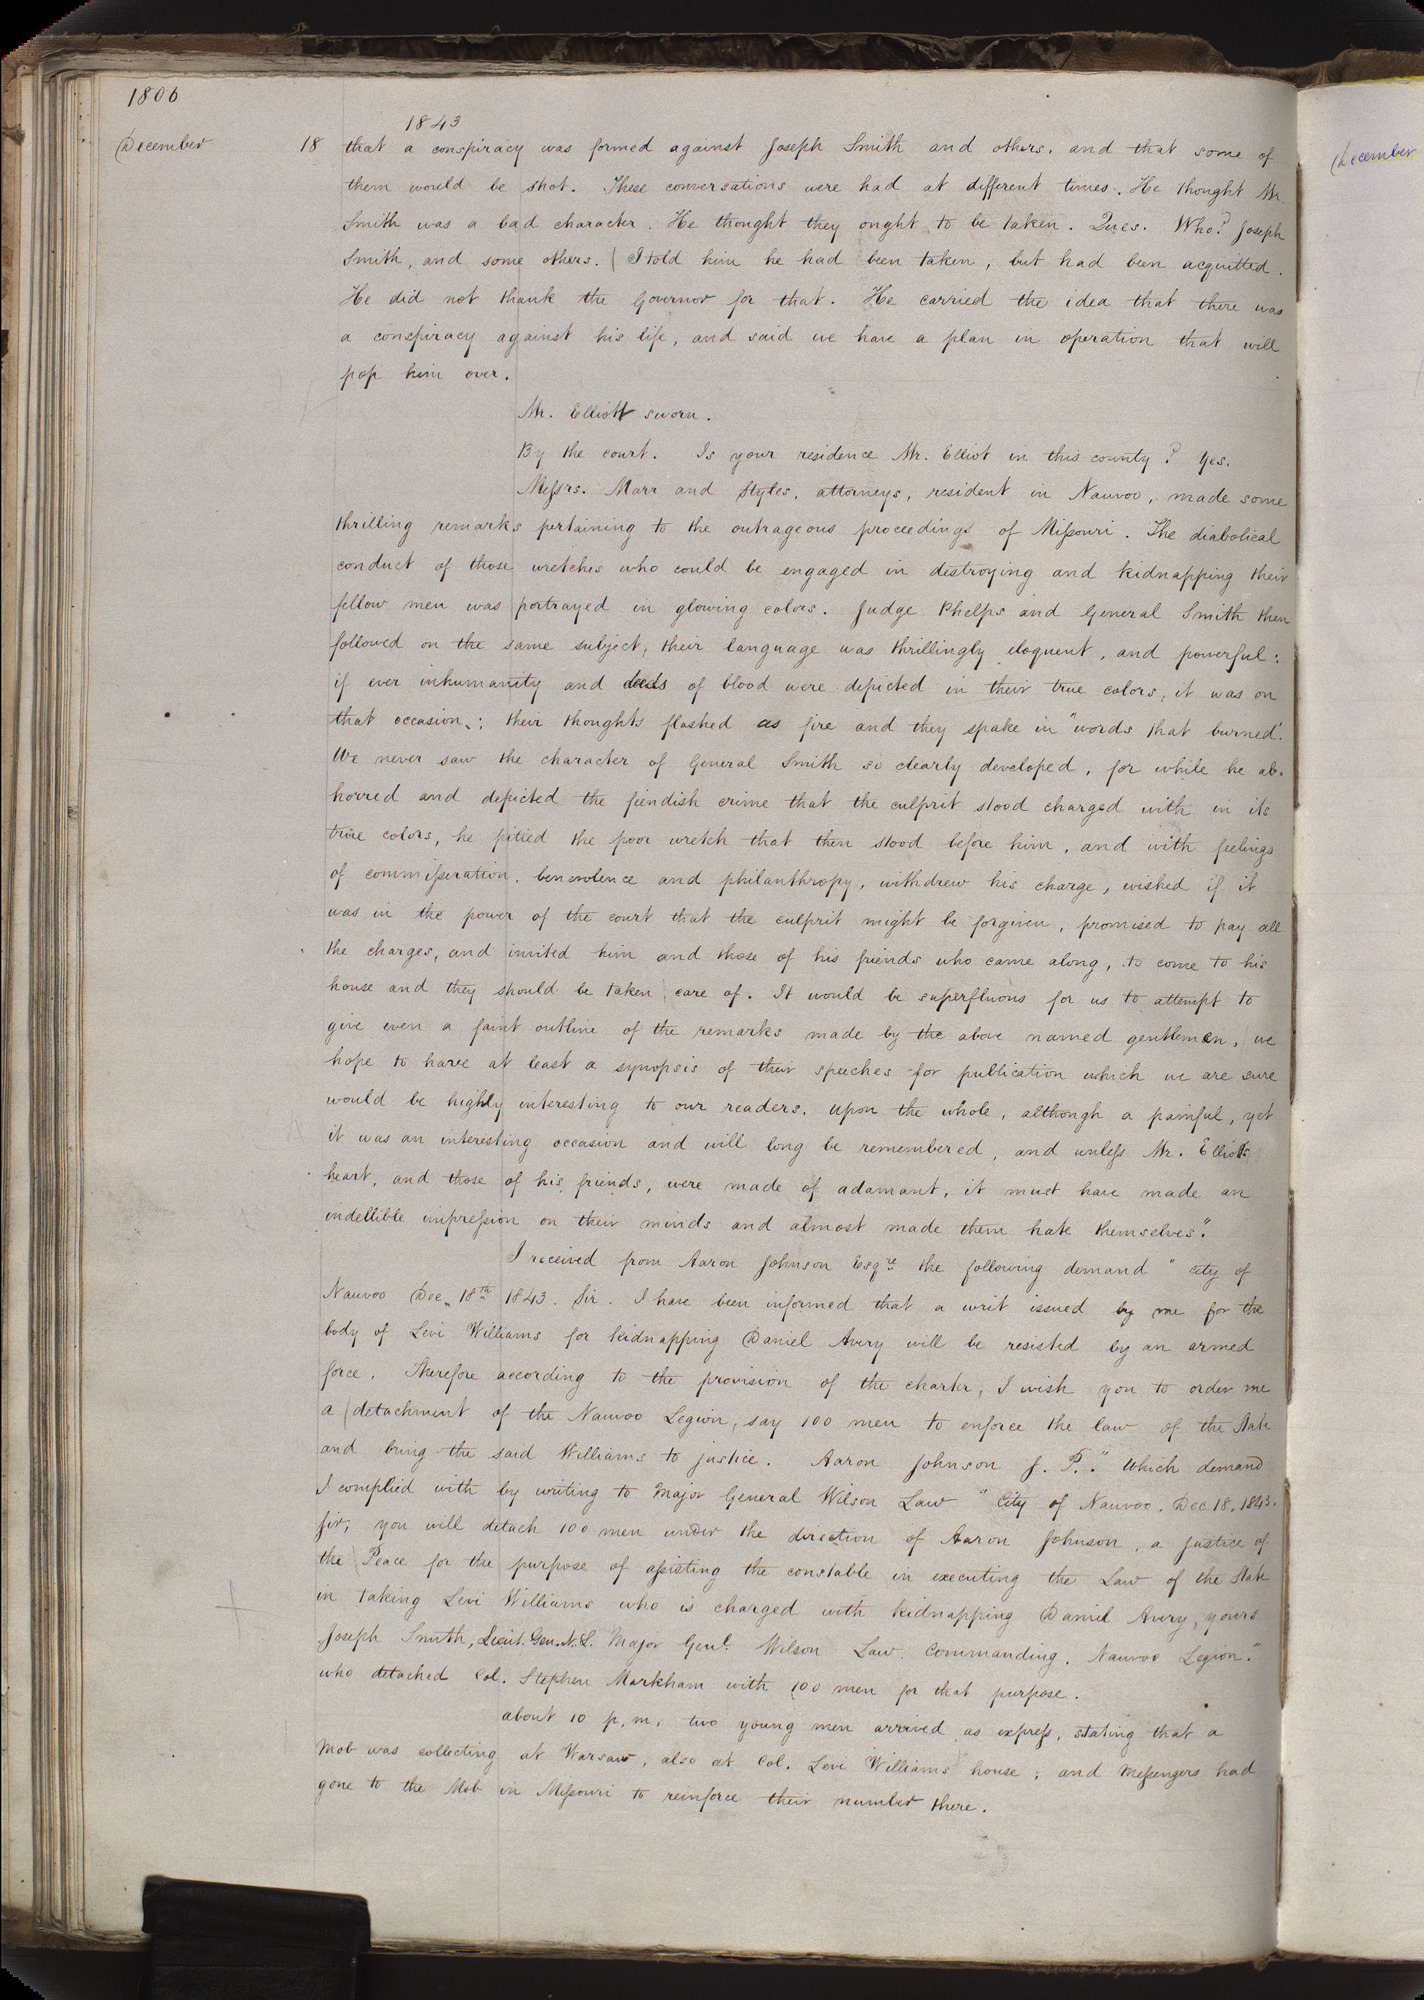 1806
1843
December 18 that a conspiracy was formed against Joseph Smith and others, and that some of
December
them would be shot. These conversations were had at different times. He thought Mr.
Smith was a bad character. He thought they ought to be taken. Ques. Who? Joseph
Smith, and some others. (I told him he had been taken, but had been acquitted.
He did not thank the Governor for that. He carried the idea that there was
a conspiracy against his life, and said we have a plan in operation that will
pop him over.
Mr. Elliott sworn.
By the court. Is your residence Mr. Elliot in this county? Yes.
Messrs. Marr and Styles, attorneys, resident in Nauvoo, made some
thrilling remarks pertaining to the outrageous proceedings of Missouri. The diabolical
conduct of those wretches who could be engaged in destroying and kidnapping their
fellow men was portrayed in glowing colors. Judge Phelps and General Smith then
followed on the same subject, their language was thrillingly eloquent, and powerful:
if ever inhumanity and deeds of blood were depicted in their true colors, it was on
that occasion,: their thoughts flashed as fire and they spake in "words that burned'.
We never saw the character of General Smith so clearly developed, for while he ab-
horred and depicted the fiendish crime that the culprit stood charged with in its
true colors, he pitied the poor wretch that then stood before him, and with feelings
of commisseration, benevolence and philanthropy, withdrew his charge, wished if it
was in the power of the court that the culprit might be forgiven, promised to pay all
the charges, and invited him and those of his friends who came along, to come to his
house and they should be taken care of. It would be superfluous for us to attempt to
give even a faint outline of the remarks made by the above named gentlemen, we
hope to have at least a synopsis of their speeches for publication which we are sure
would be highly interesting to our readers. Upon the whole, although a painful, yet
it was an interesting occasion and will long be remembered, and unless Mr. Elliotts
heart, and those of his friends, were made of adamant, it must have made an
indellible impression on their minds and almost made them hate themselves."
I received from Aaron Johnson Esqre. the following demand "City of
Nauvoo Dec. 18th 1843. Sir. I have been informed that a writ issued by me for the
body of Levi Williams for kidnapping Daniel Avery will be resisted by an armed
force. Therefore according to the provision of the charter, I wish you to order me
a (detachment of the Nauvoo Legion, say 100 men to enforce the law of the State
and bring the said Williams to justice. Aaron Johnson J. P.." Which demand
I complied with by writing to Major General Wilson Law "City of Nauvoo, Dec 18, 1843.
Sir, you will detach 100 men under the direction of Aaron Johnson, a Justice of
the Peace for the purpose of assisting the constable in executing the Law of the State
in taking Levi Williams who is charged with kidnapping Daniel Avery, yours
Joseph Smith, Lieut. Gen. N. L. Major Genl. Wilson Law. Commanding. Nauvoo Legion."
who detached Col. Stephen Markham with 100 men for that purpose.
about 10 p. m. two young men arrived as express, stating that a
Mob was collecting at Warsaw, also at Col. Levi Williams' house; and Messengers had
gone to the Mob in Missouri to reinforce their number there.